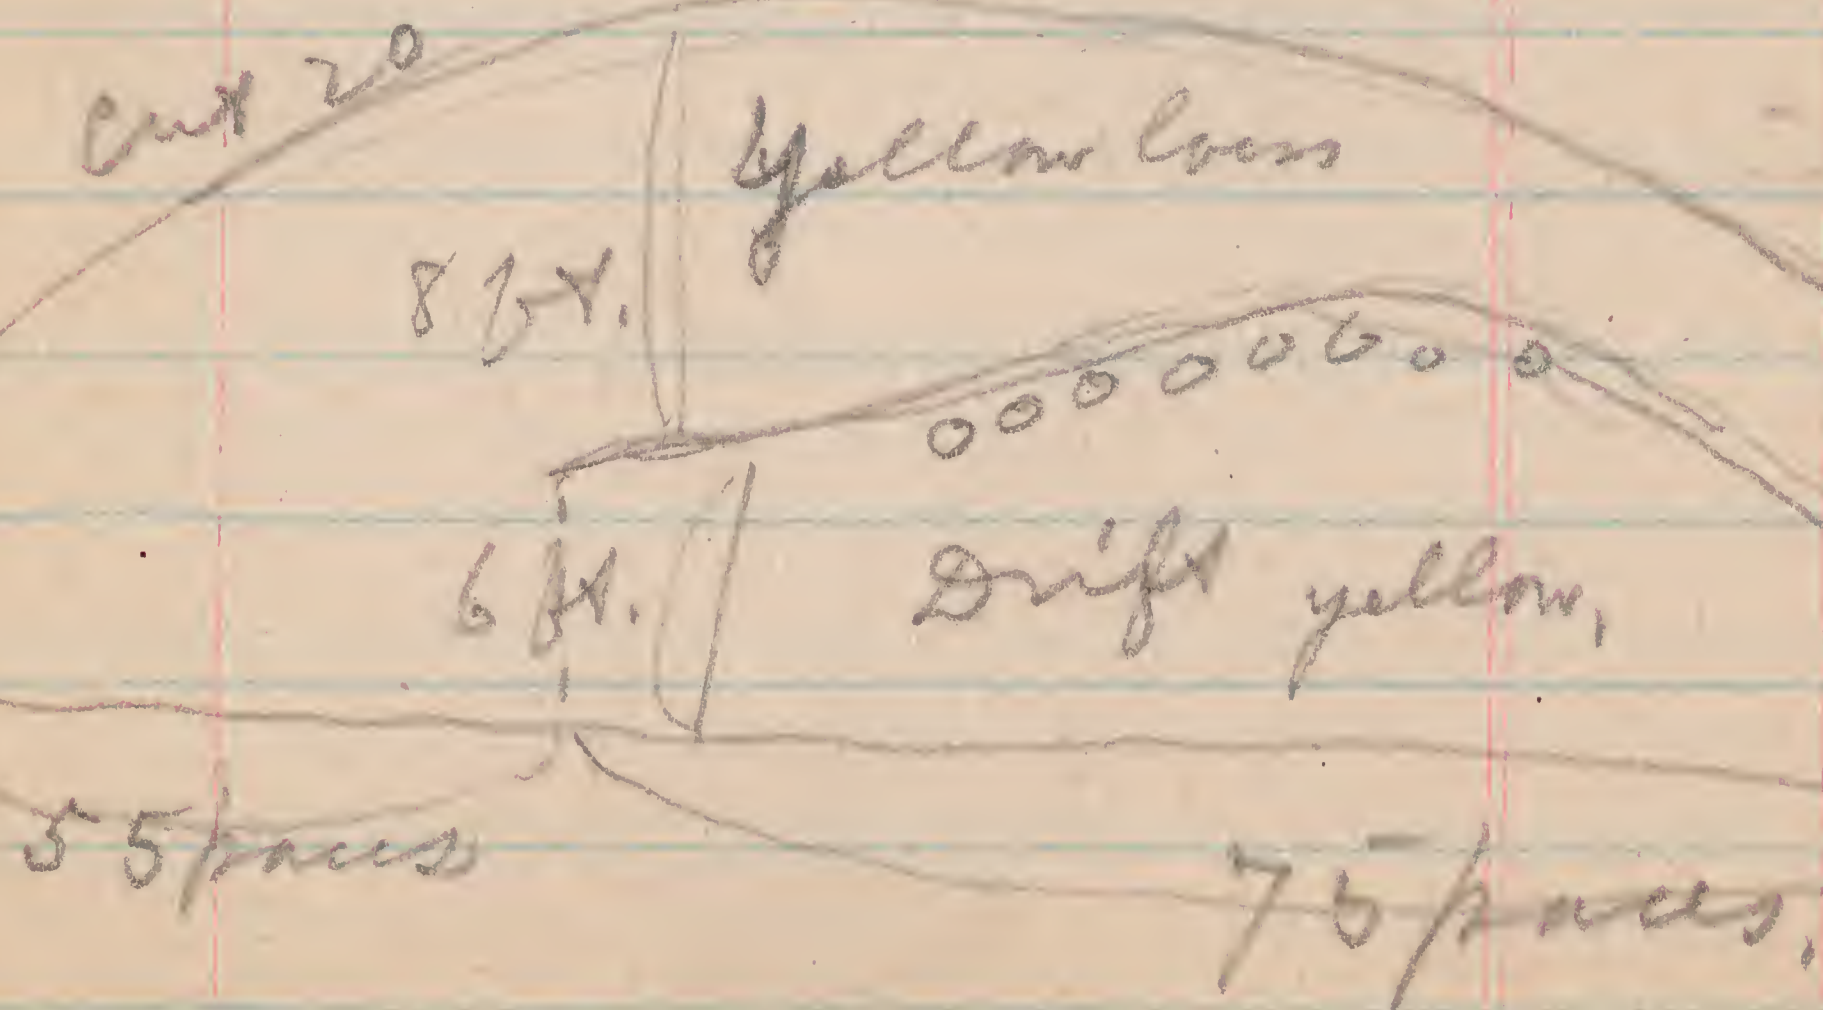 Cut 20
Yellow loess
8 ft.
6 ft.
Drift yellow,
55 paces
75 paces,